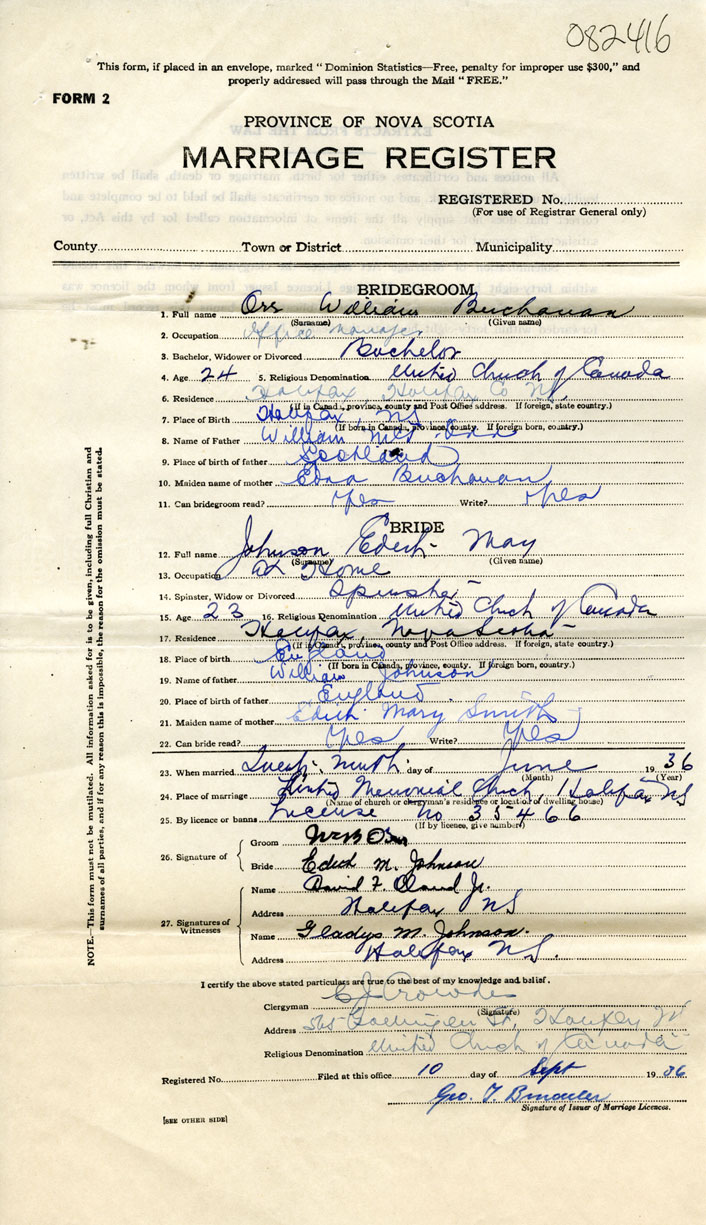 082416
This form, if placed in an envelope, marked "Dominion Statistics—Free, penalty for improper use $300," and
properly addressed will pass through the Mail "FREE."
FORM 2
PROVINCE OF NOVA SCOTIA
MARRIAGE REGISTER
REGISTERED No.
(For use of Registrar General only)
County Town or District Municipality
BRIDEGROOM
1. Full name Orr William Buchanan
(Surname) (Given name)
2. Occupation Office manager
3. Bachelor, Widower or Divorced Bachelor
4. Age 24 5. Religious Denomination United Church of Canada
6. Residence Halifax, Halifax Co NS
(If in Canada, province, county and Post Office address. If foreign, state country.)
7. Place of Birth Halifax, NS
(If born in Canada, province, county. If foreign born, country.)
8. Name of Father William Orr
9. Place of birth of father Scotland
10. Maiden name of mother Edna Buchanan
11. Can bridegroom read? Yes Write? Yes
BRIDE
12. Full name Johnson Edith May
(Surname) (Given name)
13. Occupation At Home
14. Spinster, Widow or Divorced Spinster
15. Age 23 16. Religious Denomination United Church of Canada
17. Residence Halifax, Nova Scotia
(If in Canada, province, county and Post Office address. If foreign, state country.)
18. Place of birth England
(If born in Canada, province, county. If foreign born, country.)
19. Name of father William Johnson
20. Place of birth of father England
21. Maiden name of mother Edith Mary Smith
22. Can bride read? Yes Write? Yes
23. When married day of June 1936
(Month) (Year)
24. Place of marriage United Memorial Church, Halifax NS
(Name of church or clergyman's residence or location of dwelling house)
25. By licence or banns License No 35466
(If by licence, give number)
26. Signature of
Groom W B Orr
Bride Edith M. Johnson
27. Signatures of Witnesses
Name David F. Jr.
Address Halifax NS
Name Gladys M. Johnson.
Address Halifax NS.
I certify the above stated particulars are true to the best of my knowledge and belief.
Clergyman
(Signature)
Address St, Halifax NS
Religious Denomination United Church of Canada
Registered No. Filed at this office 10 day of Sept 1936
Geo. T.
Signature of Issuer of Marriage Licences.
[SEE OTHER SIDE]
NOTE.—This form must not be mutilated. All information asked for is to be given, including full Christian and
surnames of all parties, and if for any reason this is impossible, the reason for the omission must be stated.